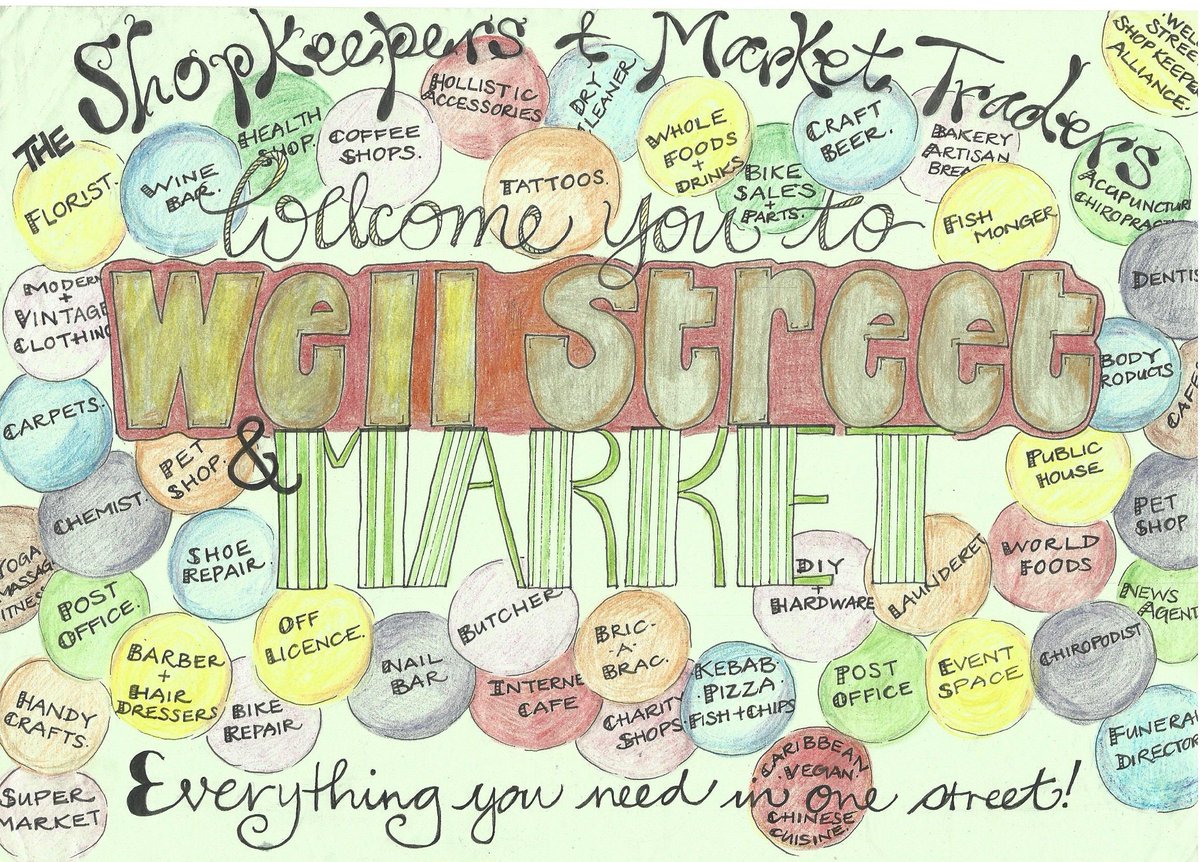 THE Shopkeepers + Market Traders
WELL
STREET
SHOPKEEPER
ALLIANCE.
HEALTH
SHOP.
COFFEE
SHOPS.
HOLLISTIC
ACCESSORIES
DRY
CLEANER
WHOLE
FOODS
+
DRINKS
CRAFT
BEER.
BAKERY
ARTISAN
BREA
FLORIST.
WINE
BAR.
TATTOOS.
BIKE
SALES
+
PARTS.
FISH
MONGER
ACUPUNCTURE
CHIROPRACT
Welcome you to
MODERN
+
VINTAGE
CLOTHING
DENTIS
Well Street
BODY
PRODUCTS
CAFE
CARPETS.
PET
SHOP.
& MARKET
PUBLIC
HOUSE
CHEMIST.
PET
SHOP
SHOE
REPAIR.
WORLD
FOODS
YOGA
MASSAG
FITNESS
POST
OFFICE.
OFF
LICENCE.
BUTCHER
DIY
+
HARDWARE
LAUNDERET
NEWS
AGENT
BARBER
+
HAIR
DRESSERS
NAIL
BAR
BRIC-
-A-
BRAC.
KEBAB.
.PIZZA.
FISH+CHIPS
POST
OFFICE
EVENT
SPACE
CHIROPODIST
HANDY
CRAFTS.
BIKE
REPAIR
INTERNE
CAFE
CHARITY
SHOPS.
FUNERAL
DIRECTOR
SUPER
MARKET
CARIBBEAN
.VEGAN.
CHINESE
CUISINE.
Everything you need in one street!